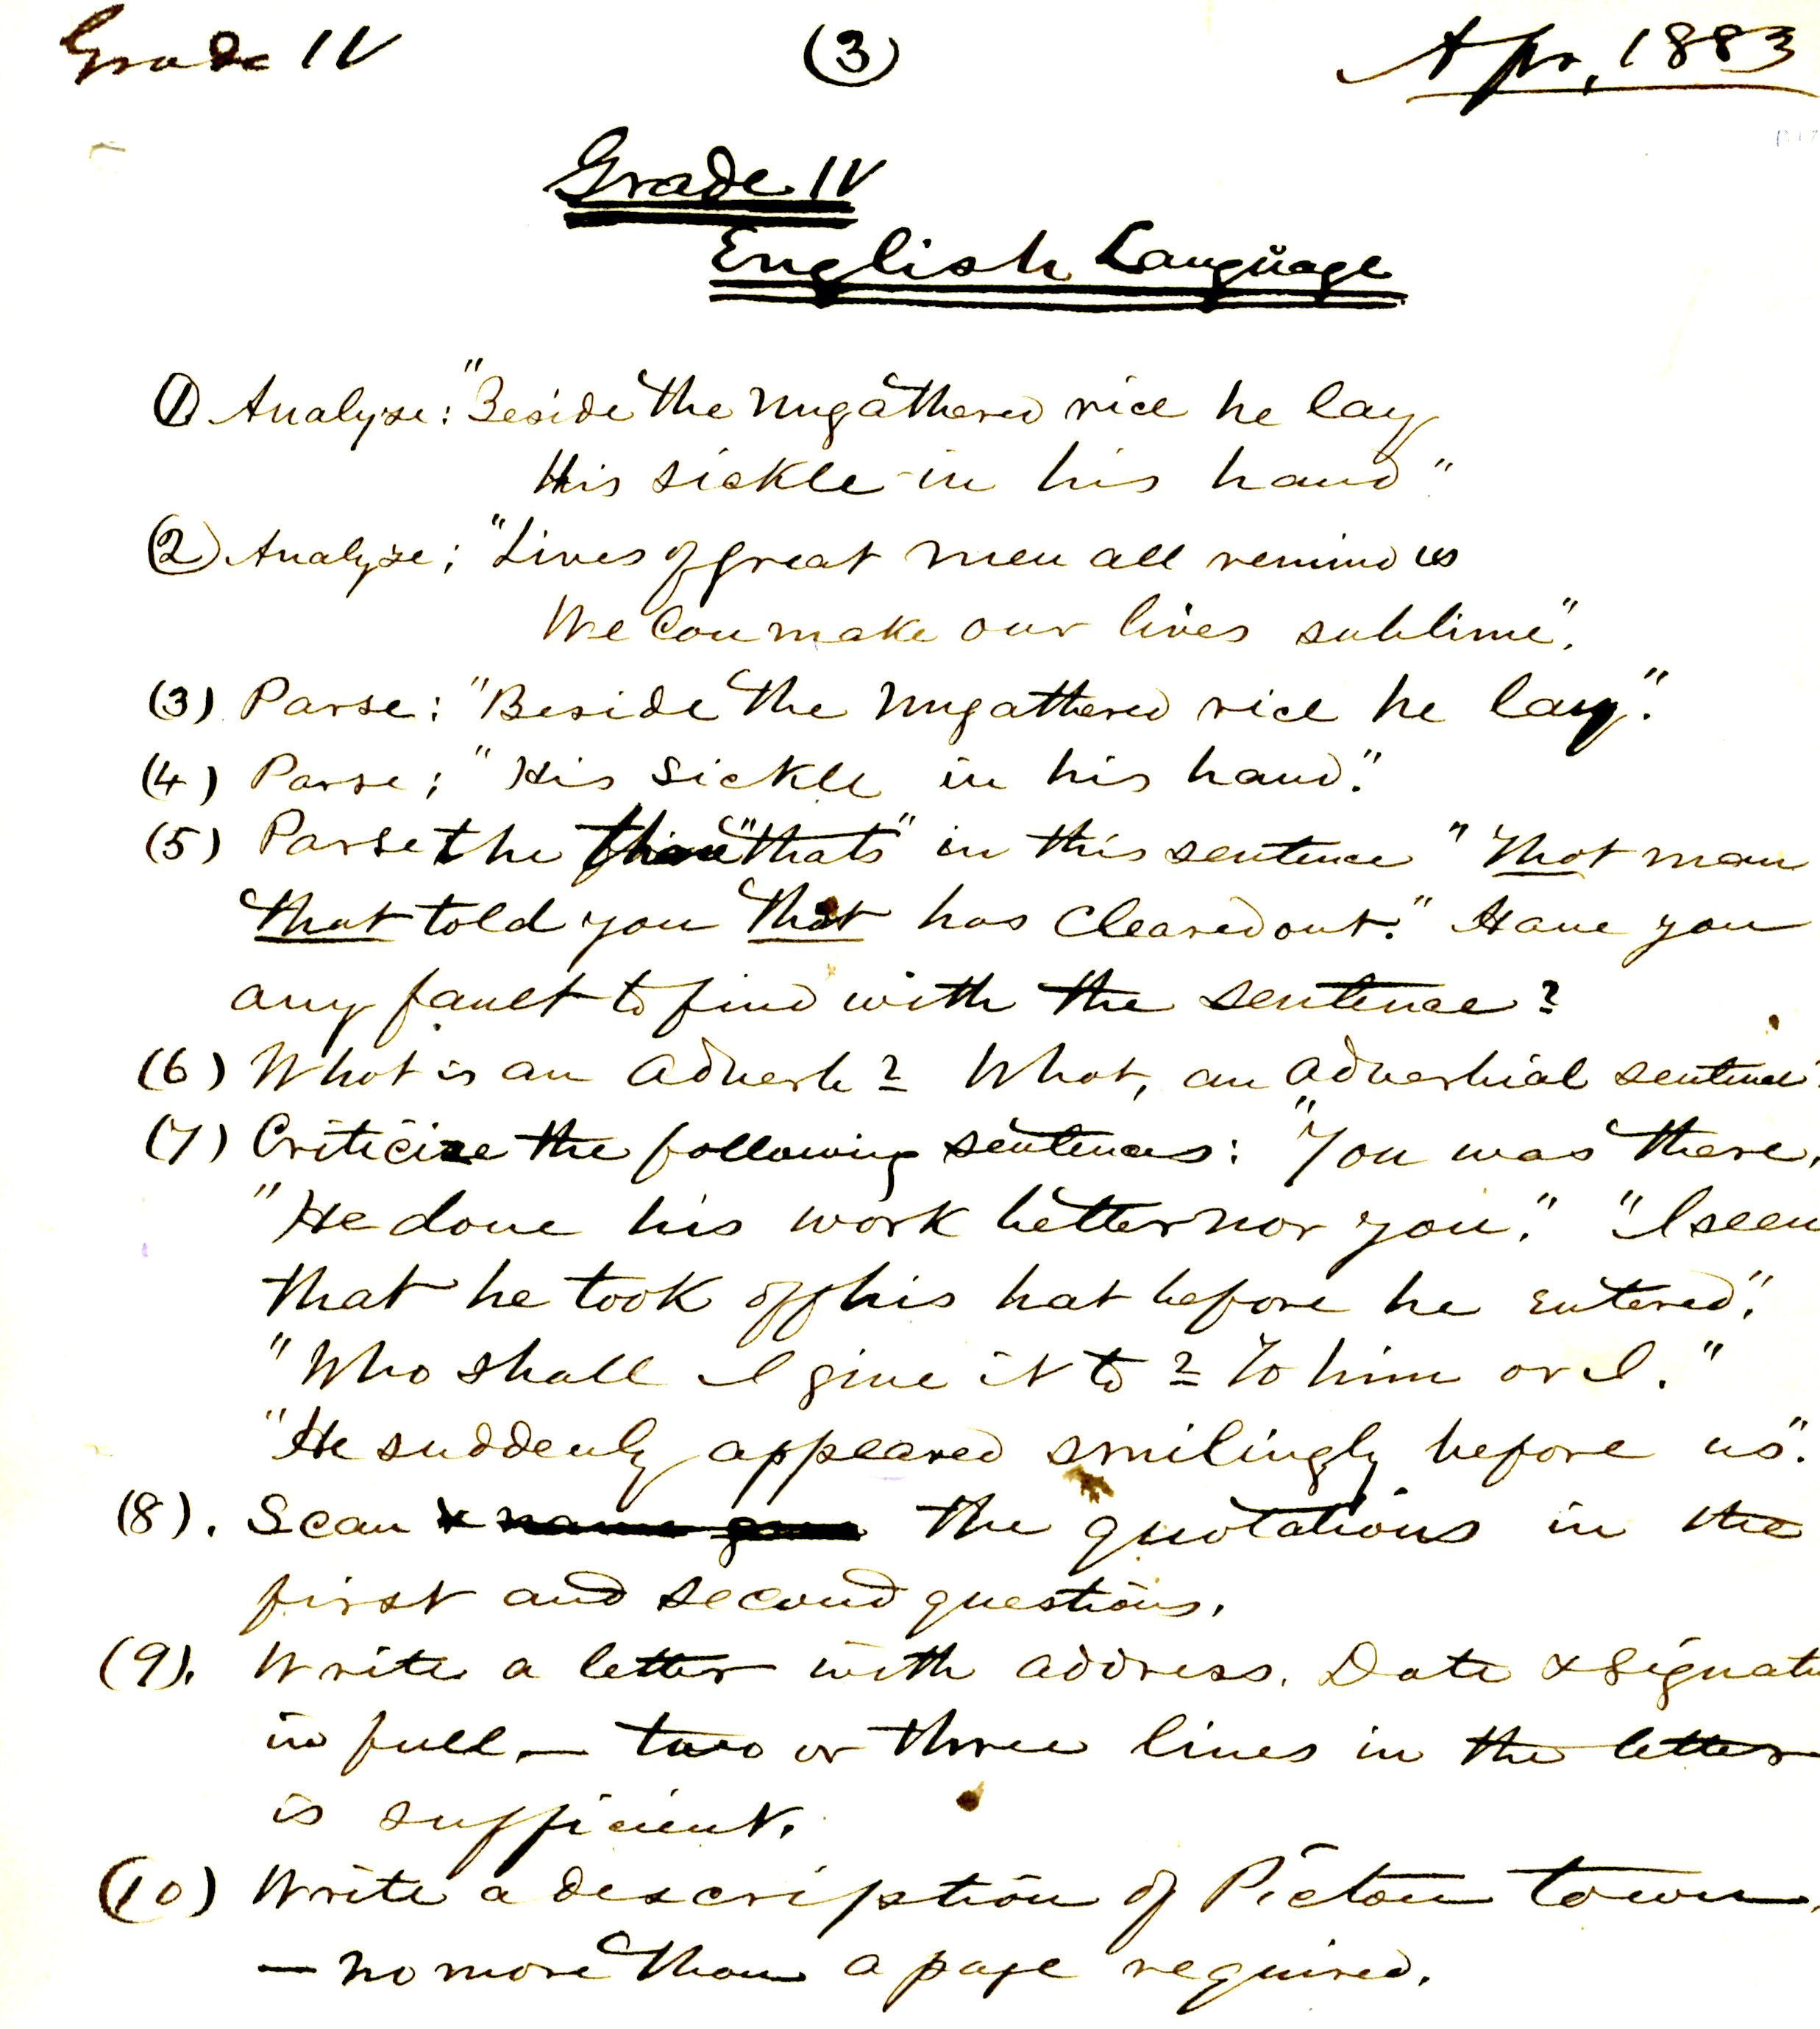 Grade IV (3) Apr, 1883
Grade IV
English Language
(1) Analyse: "Beside the ungathered rice he lay
His sickle in his hand"
(2) Analyse; "Lives of great men all remind us
We can make our lives sublime".
(3) Parse: "Beside the ungathered rice he lay".
(4) Parse; "His sickle in his hand".
(5) Parse the "thats" in this sentence "That man
that told you that has cleared out." Have you
any fault to find with the sentence?
(6) What is an adverb? What, an adverbial sentence
(7) Criticize the following sentences: "You was there,
"He done his work better nor you." "I seen
that he took off his hat before he entered".
"Who shall I give it to? To him or I."
"He suddenly appeared smilingly before us".
(8). Scan the quotations in the
first and second questions.
(9). Write a letter with address. Date & Signatu
in full — two or three lines in the letter
is sufficient.
(10) Write a description of Pictou town,
— no more than a page required.